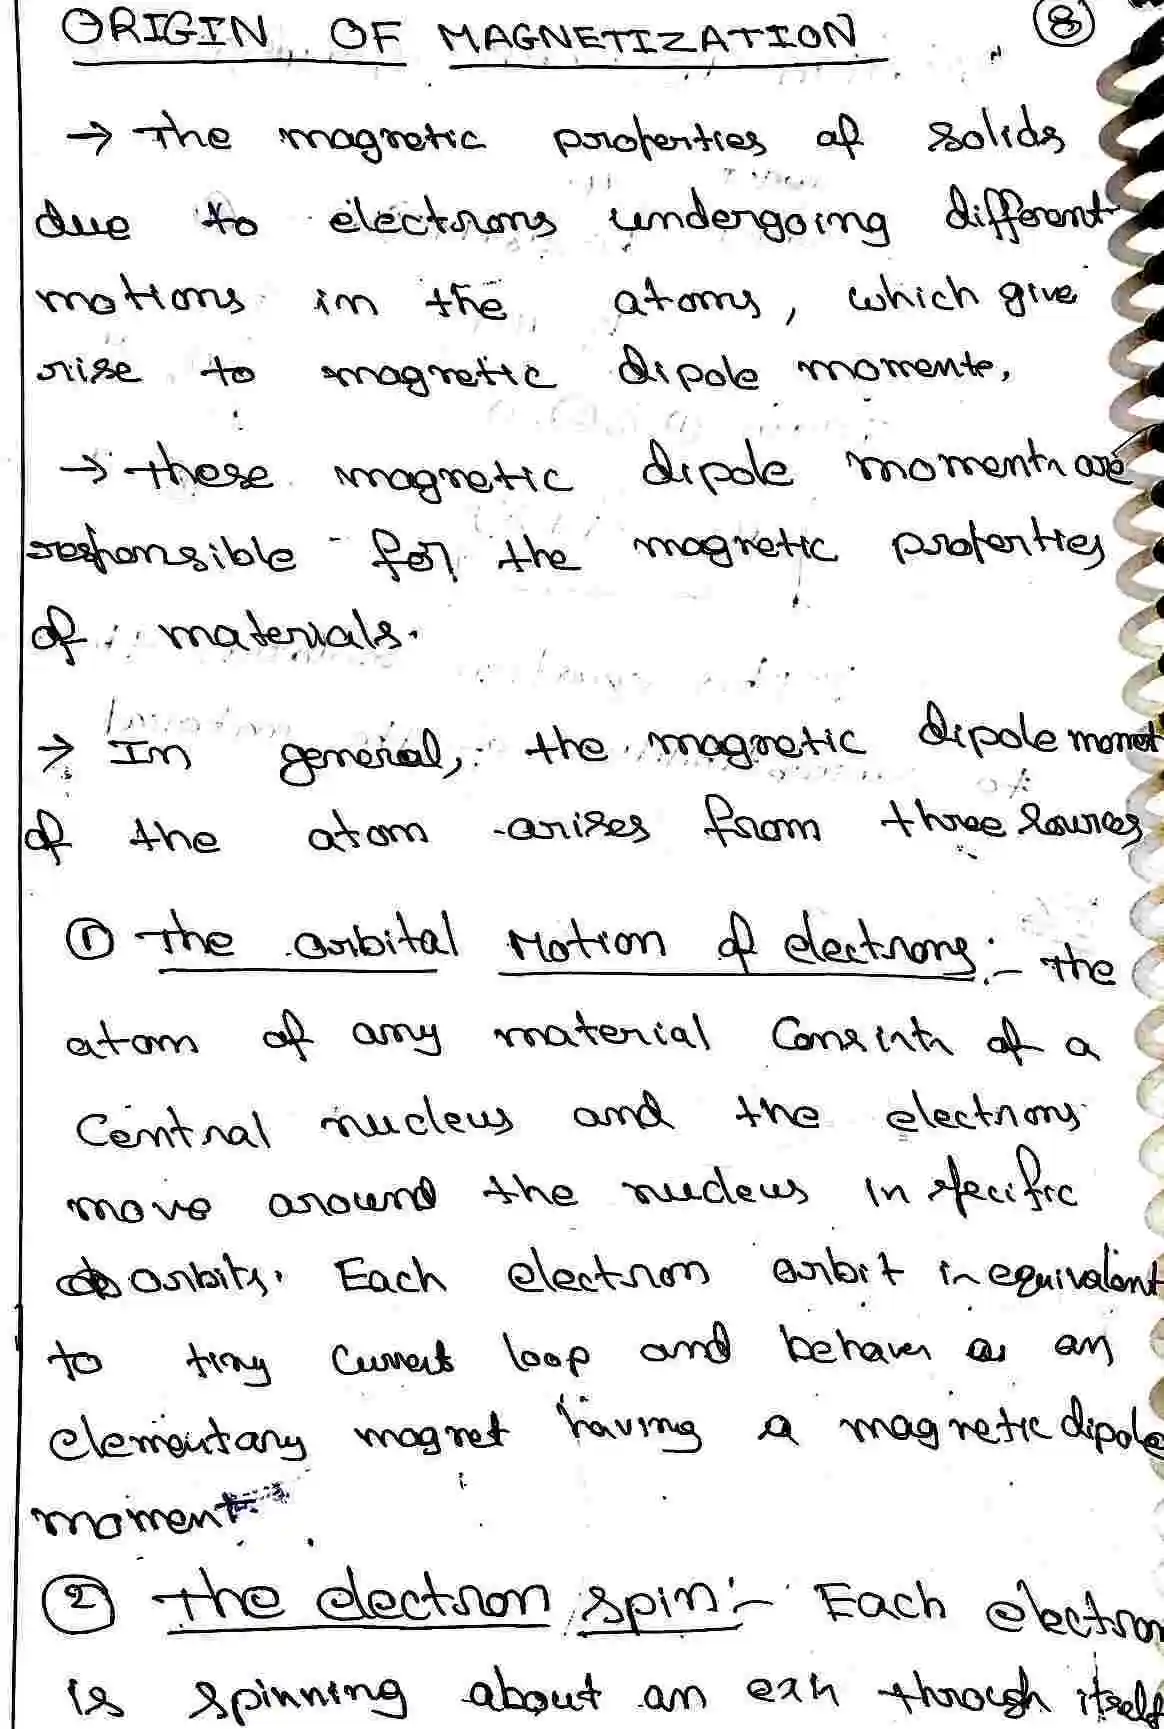 ORIGIN OF MAGNETIZATION 8
→ The magnetic properties of solids
due to electrons undergoing different
motions in the atoms, which give
rise to magnetic dipole moments,
→ these magnetic dipole moments are
responsible for the magnetic properties
of materials.
→ In general, the magnetic dipole moment
of the atom arises from three sources
① The orbital Motion of electrons:- The
atom of any material consists of a
Central nucleus and the electrons
move around the nucleus in specific
orbits. Each electron orbit is equivalent
to tiny current loop and behaves as an
elementary magnet having a magnetic dipole
moment
② The electron spin:- Each electron
is spinning about an axis through itself